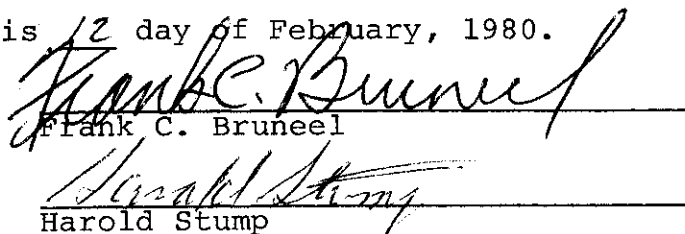 is 12 day of February, 1980.
Frank C. Bruneel
Frank C. Bruneel
Harold Stump
Harold Stump